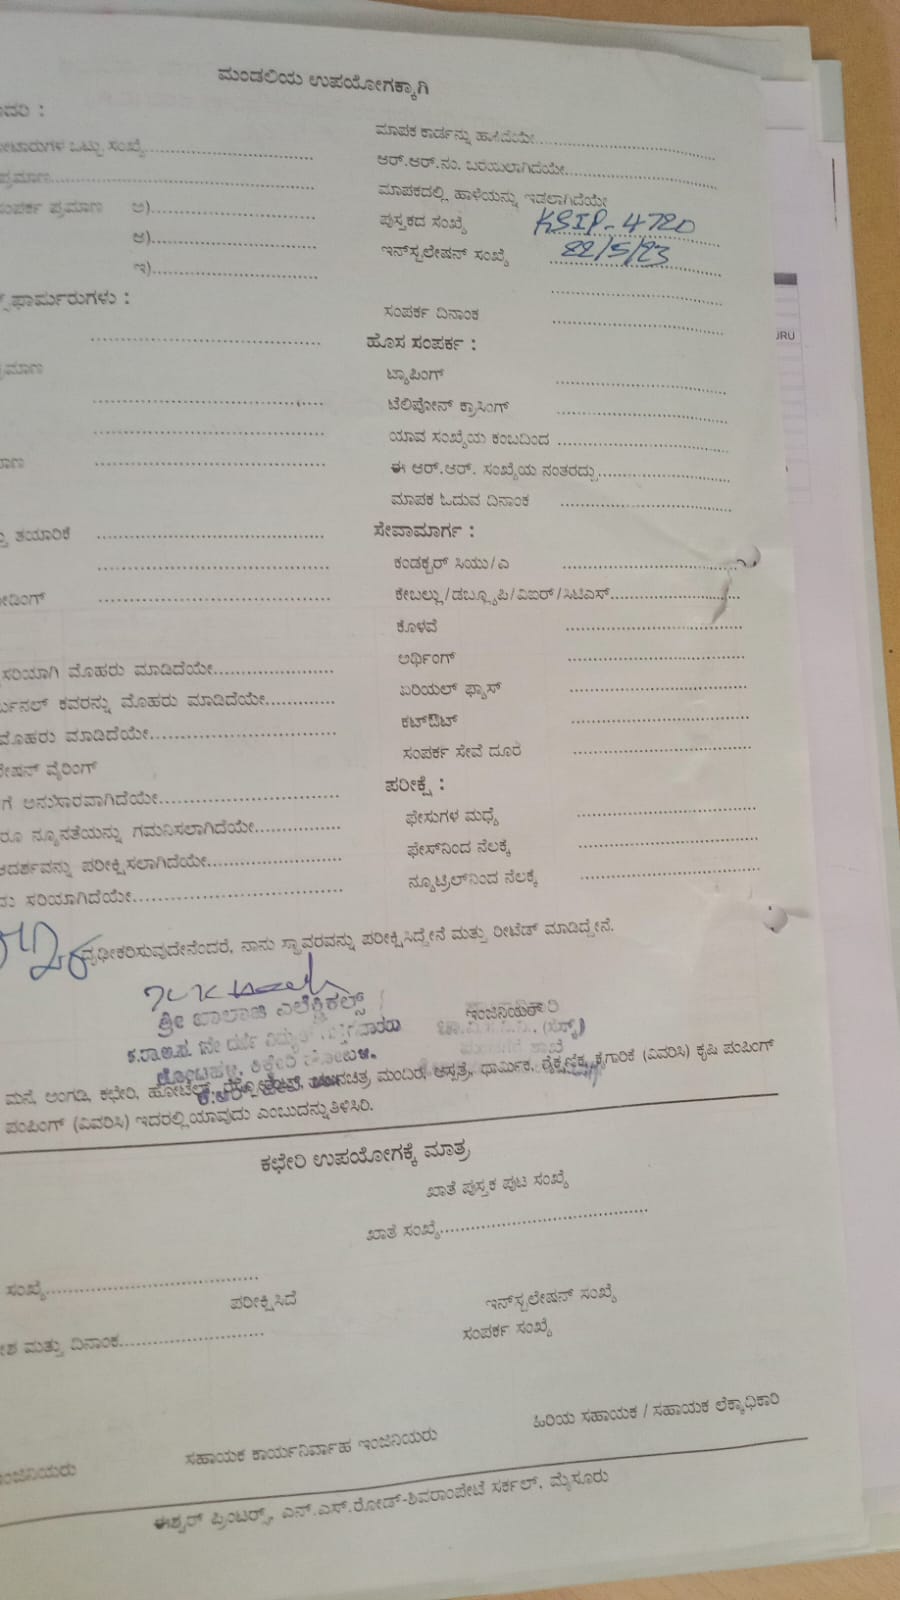 ಮಂಡಲಿಯ ಉಪಯೋಗಕ್ಕಾಗಿ
ಒಟ್ಟು ಸಂಖ್ಯೆ
ಪ್ರಮಾಣ
ಸಂಪರ್ಕ ಪ್ರಮಾಣ ಅ)
ಆ)
ಇ)
ಫಾರ್ಮರುಗಳು :
ತಯಾರಿಕೆ
ಸರಿಯಾಗಿ ಮೊಹರು ಮಾಡಿದೆಯೇ
ಕವರನ್ನು ಮೊಹರು ಮಾಡಿದೆಯೇ
ಮೊಹರು ಮಾಡಿದೆಯೇ
ವೈರಿಂಗ್
ಅನುಸಾರವಾಗಿದೆಯೇ
ನ್ಯೂನತೆಯನ್ನು ಗಮನಿಸಲಾಗಿದೆಯೇ
ಪರೀಕ್ಷಿಸಲಾಗಿದೆಯೇ
ಸರಿಯಾಗಿದೆಯೇ
ಮಾಪಕ ಕಾರ್ಡನ್ನು ಹಾಕಿದೆಯೇ
ಆರ್.ಆರ್.ನಂ. ಬರಯಲಾಗಿದೆಯೇ
ಮಾಪಕದಲ್ಲಿ ಹಾಳೆಯನ್ನು ಇಡಲಾಗಿದೆಯೇ
ಪುಸ್ತಕದ ಸಂಖ್ಯೆ KSIP-4720
ಇನ್‌ಸ್ಟಲೇಷನ್ ಸಂಖ್ಯೆ 22/5/23
ಸಂಪರ್ಕ ದಿನಾಂಕ
ಹೊಸ ಸಂಪರ್ಕ :
ಟ್ಯಾಪಿಂಗ್
ಟೆಲಿಫೋನ್ ಕ್ರಾಸಿಂಗ್
ಯಾವ ಸಂಖ್ಯೆಯ ಕಂಬದಿಂದ
ಈ ಆರ್.ಆರ್. ಸಂಖ್ಯೆಯ ನಂತರದ್ದು
ಮಾಪಕ ಓದುವ ದಿನಾಂಕ
ಸೇವಾಮಾರ್ಗ :
ಕಂಡಕ್ಟರ್ ಸಿಯು/ಎ
ಕೇಬಲ್ಲು/ಡಬ್ಲ್ಯೂಪಿ/ವಿಐರ್/ಸಿಟಿಎಸ್
ಕೊಳವೆ
ಅರ್ಥಿಂಗ್
ಏರಿಯಲ್ ಫ್ಯಾಸ್
ಕಟ್‌ಔಟ್
ಸಂಪರ್ಕ ಸೇವೆ ದೂರ
ಪರೀಕ್ಷೆ :
ಫೇಸುಗಳ ಮಧ್ಯೆ
ಫೇಸ್‌ನಿಂದ ನೆಲಕ್ಕೆ
ನ್ಯೂಟ್ರಲ್‌ನಿಂದ ನೆಲಕ್ಕೆ
ನಾನು ಸ್ಥಾವರವನ್ನು ಪರೀಕ್ಷಿಸಿದ್ದೇನೆ ಮತ್ತು ರೀಟೆಡ್ ಮಾಡಿದ್ದೇನೆ.
ಶ್ರೀ ಬಾಲಾಜಿ ಎಲೆಕ್ಟ್ರಿಕಲ್ಸ್
ಮನೆ, ಅಂಗಡಿ, ಕಛೇರಿ, ಹೋಟೆಲ್, ಮಂದಿರ, ಆಸ್ಪತ್ರೆ, ಧಾರ್ಮಿಕ, ಕೈಗಾರಿಕೆ (ವಿವರಿಸಿ) ಕೃಷಿ ಪಂಪಿಂಗ್
ಪಂಪಿಂಗ್ (ವಿವರಿಸಿ) ಇದರಲ್ಲಿ ಯಾವುದು ಎಂಬುದನ್ನು ತಿಳಿಸಿರಿ.
ಕಛೇರಿ ಉಪಯೋಗಕ್ಕೆ ಮಾತ್ರ
ಖಾತೆ ಪುಸ್ತಕ ಪುಟ ಸಂಖ್ಯೆ
ಖಾತೆ ಸಂಖ್ಯೆ
ಸಂಖ್ಯೆ
ಪರೀಕ್ಷಿಸಿದೆ
ಇನ್‌ಸ್ಟಲೇಷನ್ ಸಂಖ್ಯೆ
ಮತ್ತು ದಿನಾಂಕ
ಸಂಪರ್ಕ ಸಂಖ್ಯೆ
ಸಹಾಯಕ ಕಾರ್ಯನಿರ್ವಾಹ ಇಂಜಿನಿಯರು
ಹಿರಿಯ ಸಹಾಯಕ / ಸಹಾಯಕ ಲೆಕ್ಕಾಧಿಕಾರಿ
ಈಶ್ವರ್ ಪ್ರಿಂಟರ್‍ಸ್, ಎನ್.ಎಸ್.ರೋಡ್-ಶಿವರಾಂಪೇಟೆ ಸರ್ಕಲ್, ಮೈಸೂರು